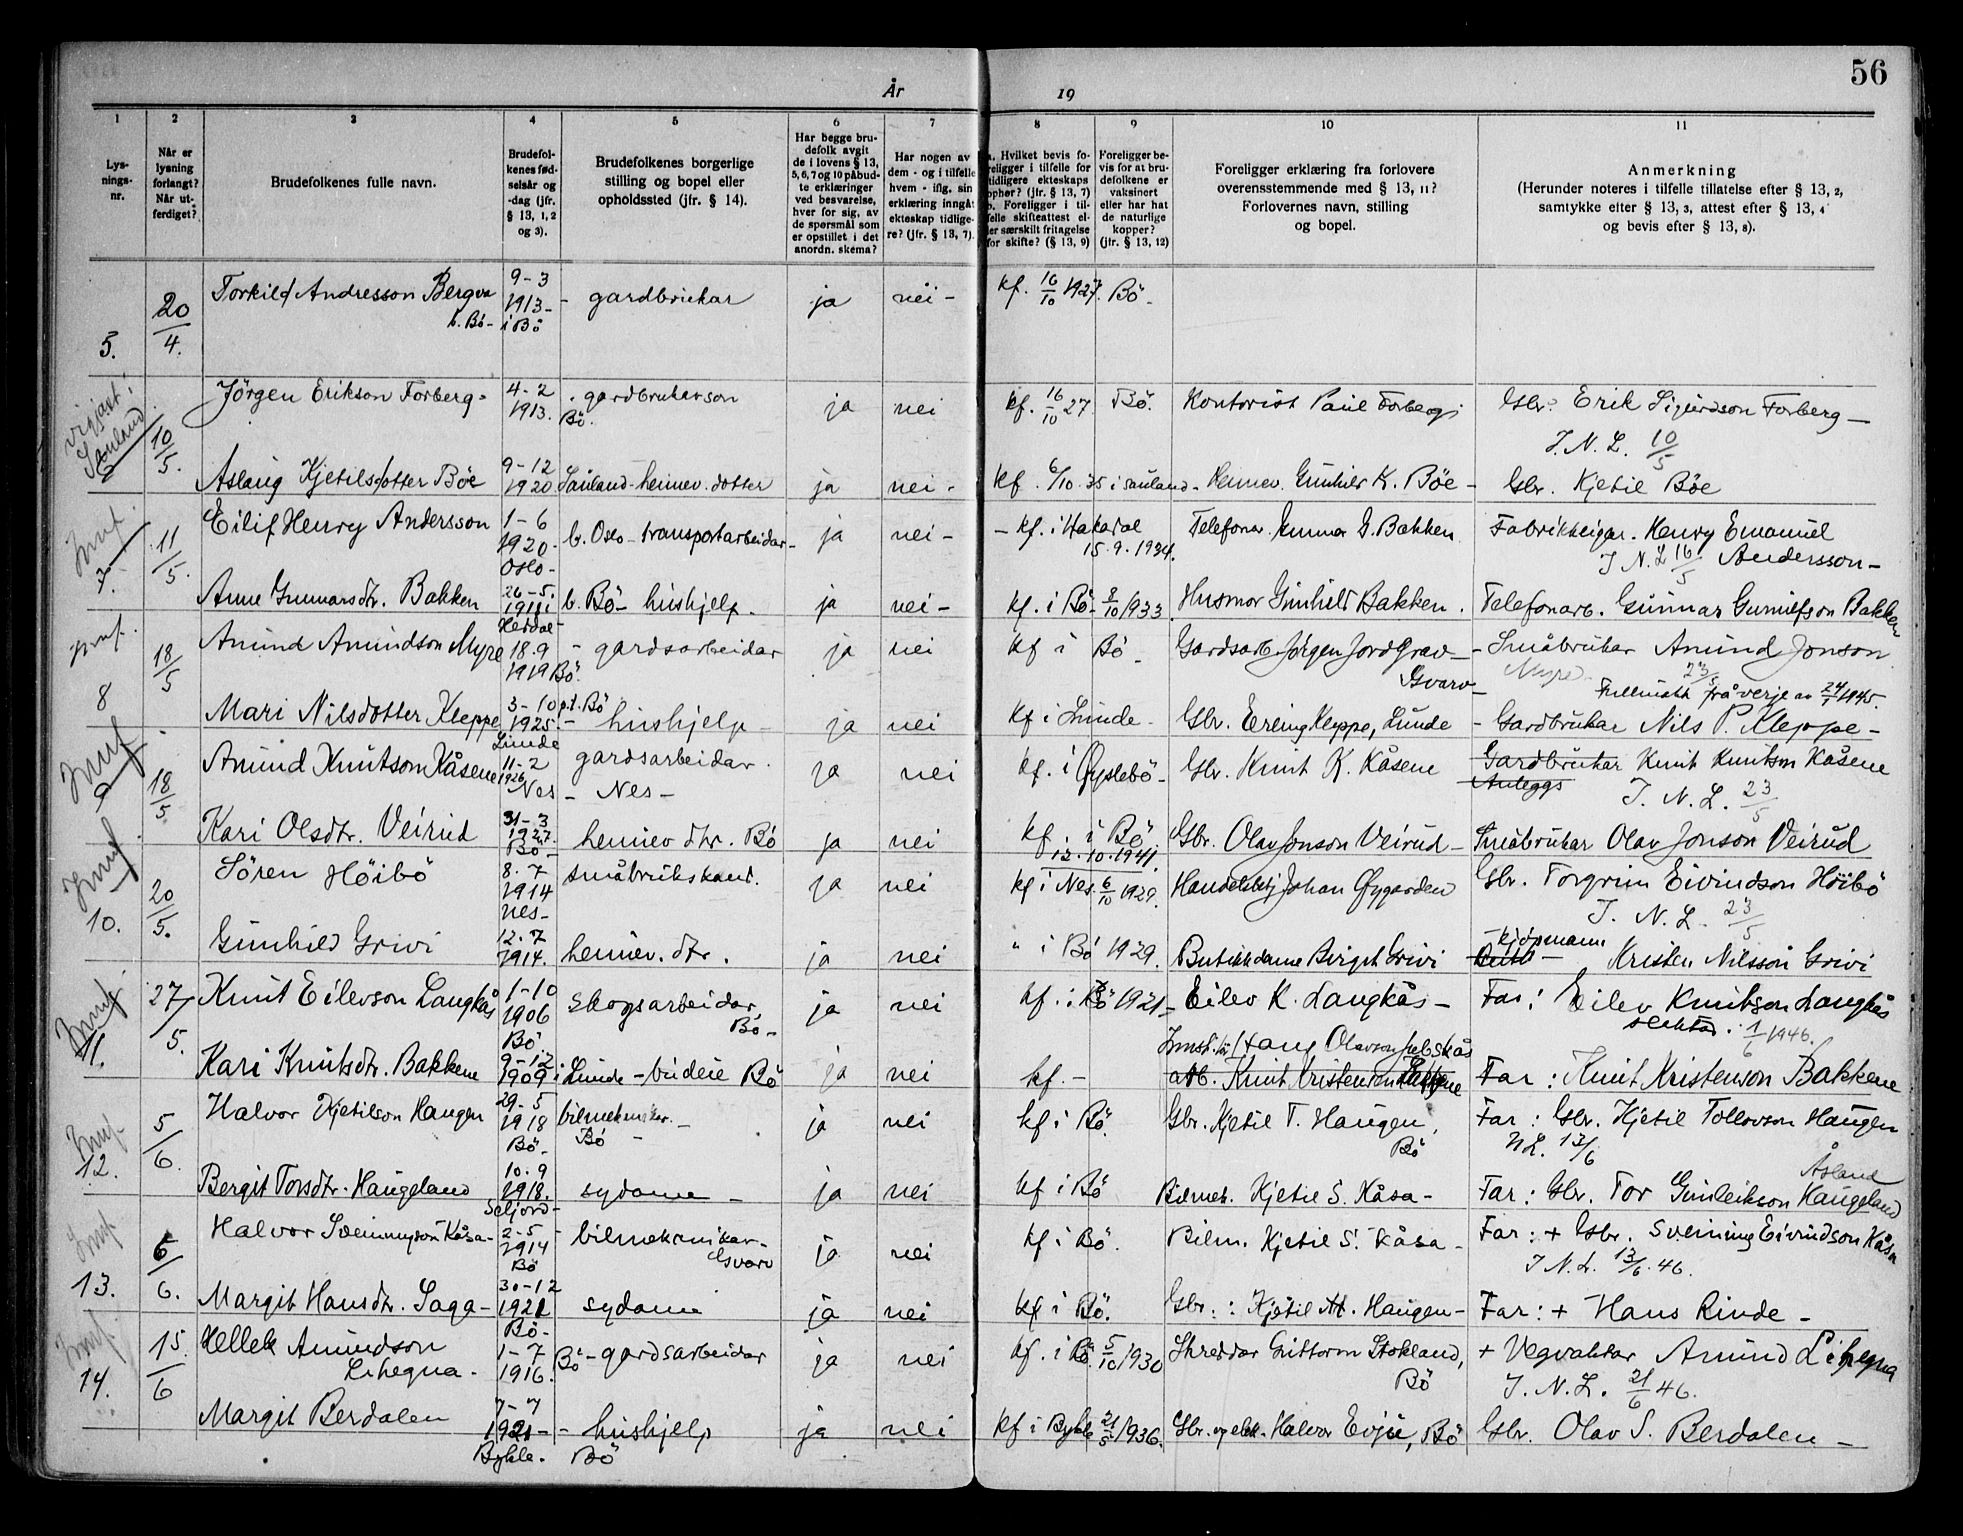 56
År 19
1 2 3 4 5 6 7 8 9 10 11
Lys-
nings-
nr.
Når er
lysning
forlangt?
Når ut-
ferdiget?
Brudefolkenes fulle navn.
Brudefol-
kenes fød-
selsår og
-dag (jfr.
§ 13, 1, 2
og 3).
Brudefolkenes borgerlige
stilling og bopel eller
opholdssted (jfr. § 14).
Har begge bru-
defolk avgit
de i lovens § 13,
5, 6, 7 og 10 påbud-
te erklæringer
ved besvarelse,
hver for sig, av
de spørsmål som
er opstillet i det
anordn. skema?
Har nogen av
dem - og i tilfelle
hvem - iflg. sin
erklæring inngåt
ekteskap tidlige-
re? (jfr. § 13, 7).
a. Hvilket bevis fo-
religger i tilfelle for
tidligere ekteskaps
ophør? (jfr. § 13, 7)
b. Foreligger i til-
felle skifteattest el-
ler særskilt fritagelse
for skifte? (§ 13, 9)
Foreligger be-
vis for at bru-
defolkene er
vaksinert
eller har hat
de naturlige
kopper?
(jfr. § 13, 12)
Foreligger erklæring fra forlovere
overensstemmende med § 13, 11?
Forlovernes navn, stilling
og bopel.
Anmerkning
(Herunder noteres i tilfelle tillatelse efter § 13, 2,
samtykke efter § 13, 3, attest efter § 13, 4
og bevis efter § 13, 8).
5. 20/4. Torkild Andresson Bergva b. Bö - 9-3 1913- i Bö - gardbrukar ja nei - kf. 16/10 1927. Bö -
vigjast i Sauland 10/5. Jörgen Erikson Forberg - 4-2 1913. gardbrukarson Bö. ja nei kf. 16/10 27. Bö. Kontorist Paul Forberg Gbr. Erik Sigurdson Forberg -
J. N. L. 10/5
Aslaug Kjetilsdotter Böe 9-12 1920 Sauland - heimev. dotter ja nei - kf. 6/10.35 i Sauland - Heimev. Gunhild K. Böe - Gbr. Kjetil Böe
7. 11/5. Eilif Henry Andersson 1-6 1920- Oslo - b. Oslo - transportarbeidar - ja nei - - kf. i Hakadal 15.9.1934. Telefonar. Gunnar G. Bakken Fabrikkeigar. Henry Emanuel Andersson -
J. N. L 16/5
Anne Gunnarsdtr. Bakken 26-5. 1911 i Heddal - b. Bö - hushjelp. ja nei - kf. i Bö - 8/10 1933. Husmor Gunhild Bakken. Telefonarb. Gunnar Gunulfson Bakken
8 18/5 Amund Amundson Myre 18.9 1919 Bö. - gardsarbeidar ja nei kf i Bö - Gardsarb. Jörgen Jordgrav - Gvarv - - Småbrukar Amund Jonson Myre
23/5
Fullmakt frå verje av 24/1 1945.
Mari Nilsdotter Kleppe 3-10 1925. Lunde p.t. Bö - hushjelp - ja nei kf i Lunde - Gbr. Erling Kleppe, Lunde - Gardbrukar Nils P. Kleppe -
9 18/5 Amund Knutson Kåsene 11-2 1926 Nes - gardsarbeidar. Nes - ja nei kf. i Gyslebö - Gbr. Knut K. Kåsene Gardbrukar Knut Knutson Kåsene
Anleggs J. N. L. 23/5
Kari Olsdtr. Veirud 31-3 1927. Bö - heimev dtr. Bö ja nei kf. i Bö 12.10.1941. Gbr. Olav Jonson Veirud - Småbrukar Olav Jonson Veirud
10. 20/5. Sören Höibö 8.7 1914 Nes - småbrukskand. ja nei kf i Nes 6/10 1929. Handelsbtj Johan Öygarden Gbr. Torgrim Eivindson Höibö
J. N. L. 23/5
Gunhild Grivi 12.7 1914. heimev. dtr. ja nei " i Bö 1929. Butikkdame Birgit Grivi - kjöpmann - Kristen Nilsson Grivi
11. 27/5. Knut Eilevson Langkås 1-10 1906 Bö. skogsarbeidar, Bö - ja nei kf. i Bö 1921 - Eilev K. Langkås - Far: Eilev Knutson Langkås
1/6 1946.
Kari Knutsdtr. Bakkene 9-12 1909 i Lunde - budeie Bö ja nei kf. - Olavson
arb. Knut Kristenson Bakkene Far: Knut Kristenson Bakkene
12. 5/6. Halvor Kjetilson Haugen 29-5 1918 Bö. bilmekaniker. - Bö - ja nei kf i Bö. Gbr. Kjetil T. Haugen, Bö Far: Gbr. Kjetil Tollovson Haugen
N L. 13/6
Bergit Torsdtr. Haugeland 10.9 1918. Seljord - sydame - ja nei kf i Bö Bilmek. Kjetil S. Kåsa - Far: Gbr. Tor Gunleikson Haugeland
Åsland
13. 6/6. Halvor Sveinungson Kåsa - 2-5- 1914 Bö - bilmekanikar - Gvarv ja nei kf i Bö. Bilm. Kjetil S. Kåsa - Far: + Gbr. Sveinung Eivindson Kåsa
J. N. L. 13/6.46.
Margit Hansdtr. Saga - 30-12 1921 Bö - sydame ja nei kf i Bö. Gbr.: Kjetil M. Haugen - Far: + Hans Rinde -
14. 15/6 Hellek Amundson Lihegna. 1-7 1916. Bö - gardsarbeidar ja nei kf. i Bö 5/10 1930 Skreddar Guttorm Stokland, Bö + Vegvaktar Amund Lihegna
J. N. L. 21/6 46.
Margit Berdalen 7-7 1921- Bykle. - hushjelp Bö ja nei kf i Bykle 21/5 1936. Gbr. Halvor Evju, Bö Gbr. Olav S. Berdalen -